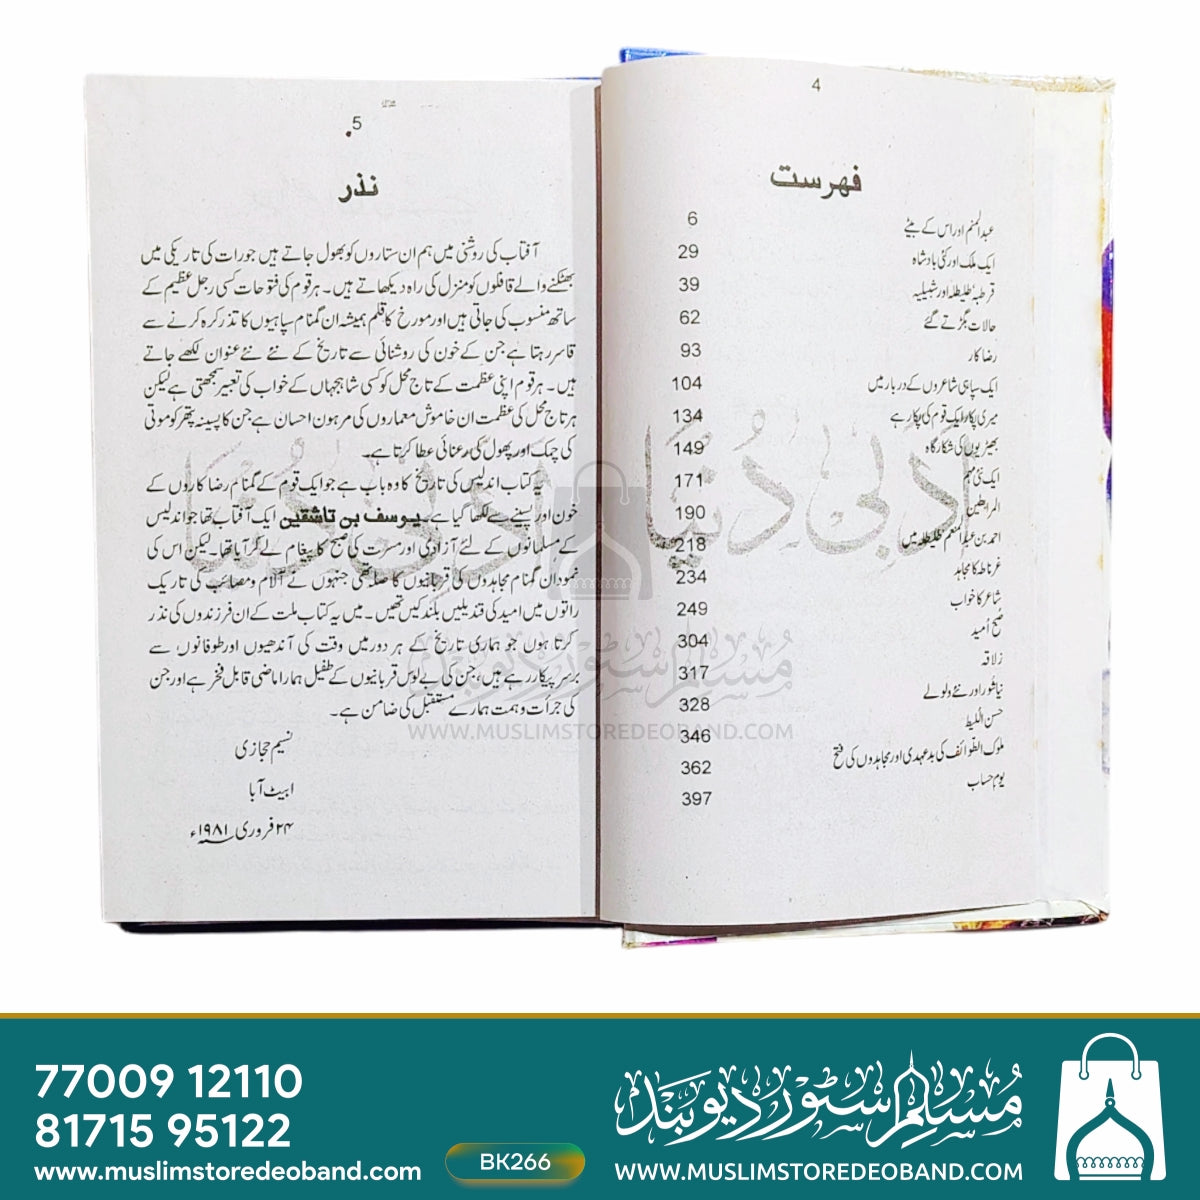 4
فهرست
عبدالمنعم اور اس کے بیٹے 6
ایک ملک اور کئی بادشاہ 29
قرطبہ، طلیطلہ اور اشبیلیہ 39
حالات بگڑتے گئے 62
رضا کار 93
ایک سپاہی شاعروں کے دربار میں 104
میری پکار ایک قوم کی پکار ہے 134
بھیڑیوں کی شکار گاہ 149
ایک نئی مہم 171
المرابطین 190
احمد بن عبدالمنعم طلیطلہ میں 218
غرناطہ کا مجاہد 234
شاعر کا خواب 249
صبح اُمید 304
زلاقہ 317
نیا شور اور نئے ولولے 328
حسن اللیط 346
ملوک الطوائف کی بدعہدی اور مجاہدوں کی فتح 362
یومِ حساب 397
5
نذر
آفتاب کی روشنی میں ہم ان ستاروں کو بھول جاتے ہیں جو رات کی تاریکی میں
بھٹکنے والے قافلوں کو منزل کی راہ دیکھاتے ہیں۔ ہر قوم کی فتوحات کسی رجل عظیم کے
ساتھ منسوب کی جاتی ہیں اور مورخ کا قلم ہمیشہ ان گمنام سپاہیوں کا تذکرہ کرنے سے
قاسر رہتا ہے جن کے خون کی روشنائی سے تاریخ کے نئے نئے عنوان لکھے جاتے
ہیں۔ ہر قوم اپنی عظمت کے تاج محل کو کسی شاہجہاں کے خواب کی تعبیر سمجھتی ہے لیکن
ہر تاج محل کی عظمت ان خاموش معماروں کی مرہون احسان ہے جن کا پسینہ پتھر کو موتی
کی چمک اور پھول کی رعنائی عطا کرتا ہے۔
یہ کتاب اندلیس کی تاریخ کا وہ باب ہے جو ایک قوم کے گمنام رضا کاروں کے
خون اور پسینے سے لکھا گیا ہے۔ یوسف بن تاشقین ایک آفتاب تھا جو اندلیس
کے مسلمانوں کے لئے آزادی اور مسرت کی صبح کا پیغام لے کر آیا تھا۔ لیکن اس کی
نمود ان گمنام مجاہدوں کی قربانیوں کا صلہ تھی جنہوں نے آلام و مصائب کی تاریک
راتوں میں امید کی قندیلیں بلند کیں تھیں۔ میں یہ کتاب ملت کے ان فرزندوں کی نذر
کرتا ہوں جو ہماری تاریخ کے ہر دور میں وقت کی آندھیوں اور طوفانوں سے
برسر پیکار رہے ہیں، جن کی بے لوس قربانیوں کے طفیل ہمارا ماضی قابل فخر ہے اور جن
کی جرأت و ہمت ہمارے مستقبل کی ضامن ہے۔
نسیم حجازی
ایبٹ آبا
۲۴ فروری ۱۹۸۱ء
ادبی دُنیا
ادبی دُنیا
مسلم سٹور دیوبند
WWW.MUSLIMSTOREDEOBAND.COM
77009 12110
81715 95122
www.muslimstoredeoband.com
BK266
مسلم سٹور دیوبند
WWW.MUSLIMSTOREDEOBAND.COM